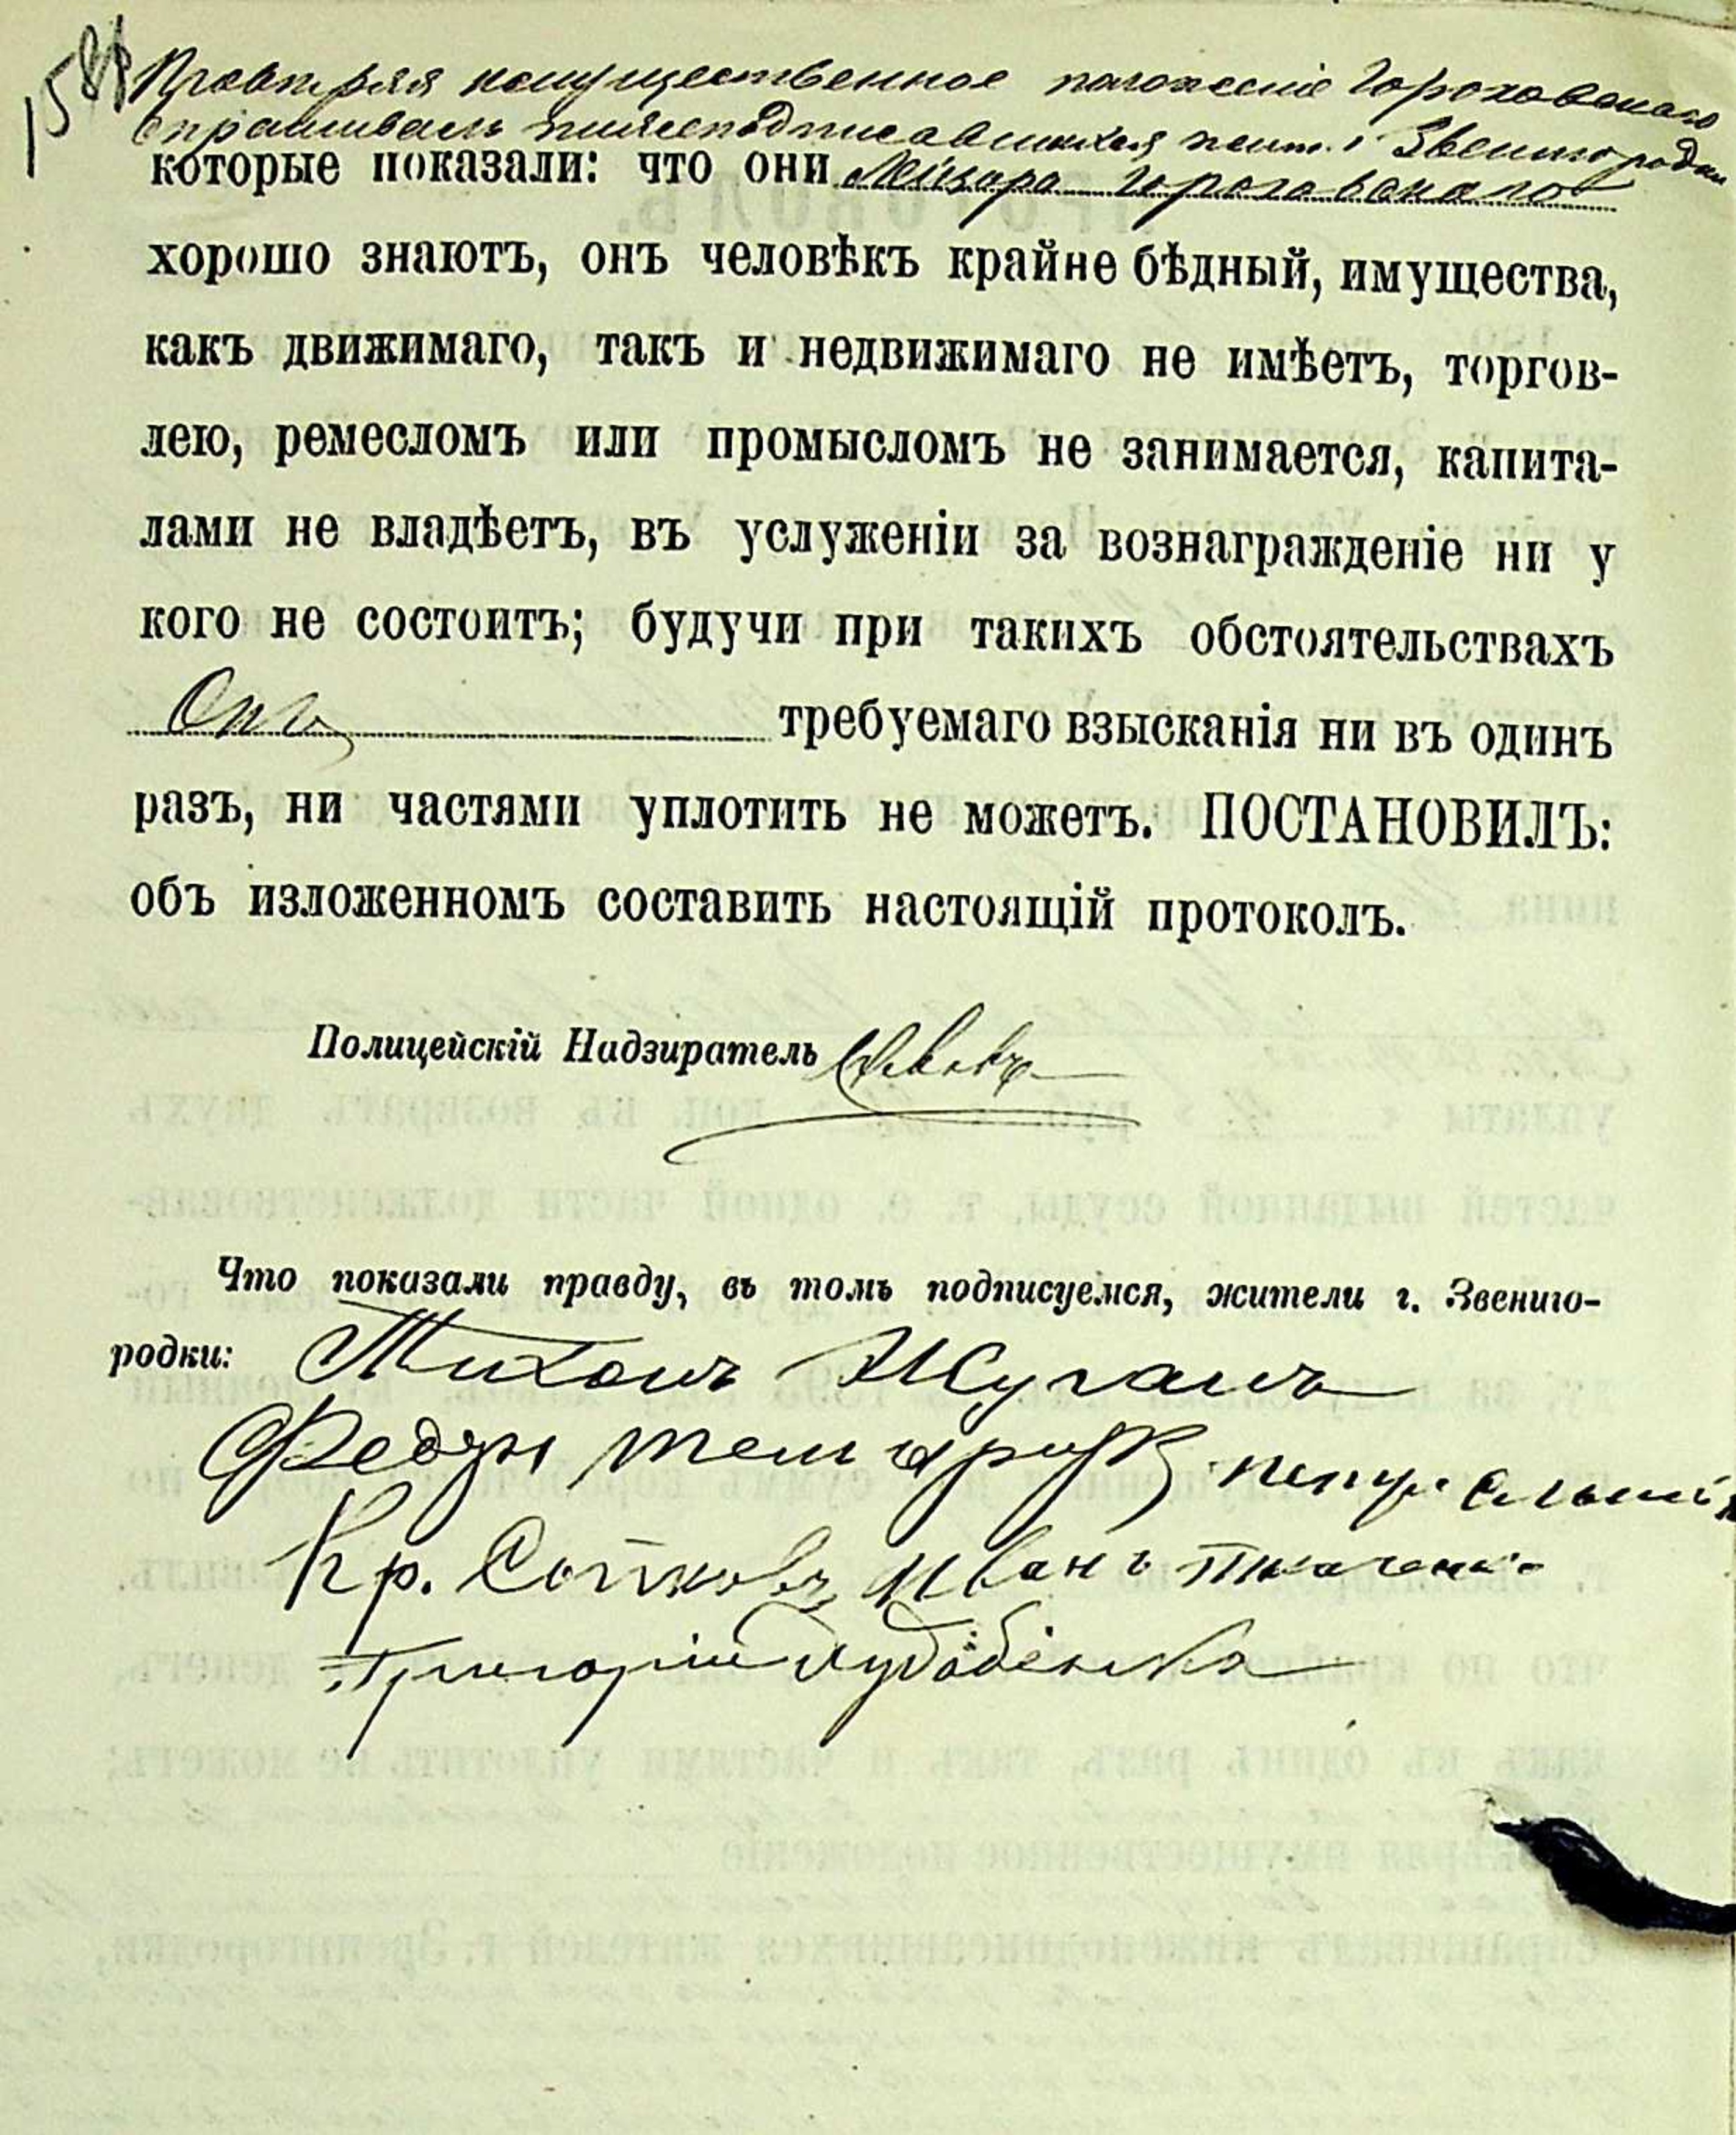 158
Провѣряя имущественное положеніе Гороховскаго
спрашивалъ нижеподписавшихся жит. г. Звенигородки
которые показали: что они Лейзора Гороховскаго
хорошо знаютъ, онъ человѣкъ крайне бѣдный, имущества,
какъ движимаго, такъ и недвижимаго не имѣетъ, торгов-
лею, ремесломъ или промысломъ не занимается, капита-
лами не владѣетъ, въ услуженіи за вознагражденіе ни у
кого не состоитъ; будучи при такихъ обстоятельствахъ
Онъ требуемаго взысканія ни въ одинъ
разъ, ни частями уплотить не можетъ. ПОСТАНОВИЛЪ:
объ изложенномъ составить настоящій протоколъ.
Полицейскій Надзиратель
Что показали правду, въ томъ подписуемся, жители г. Звениго-
родки: Тихонъ Жуганъ
Кр. Иванъ Ткаченко
Григорій